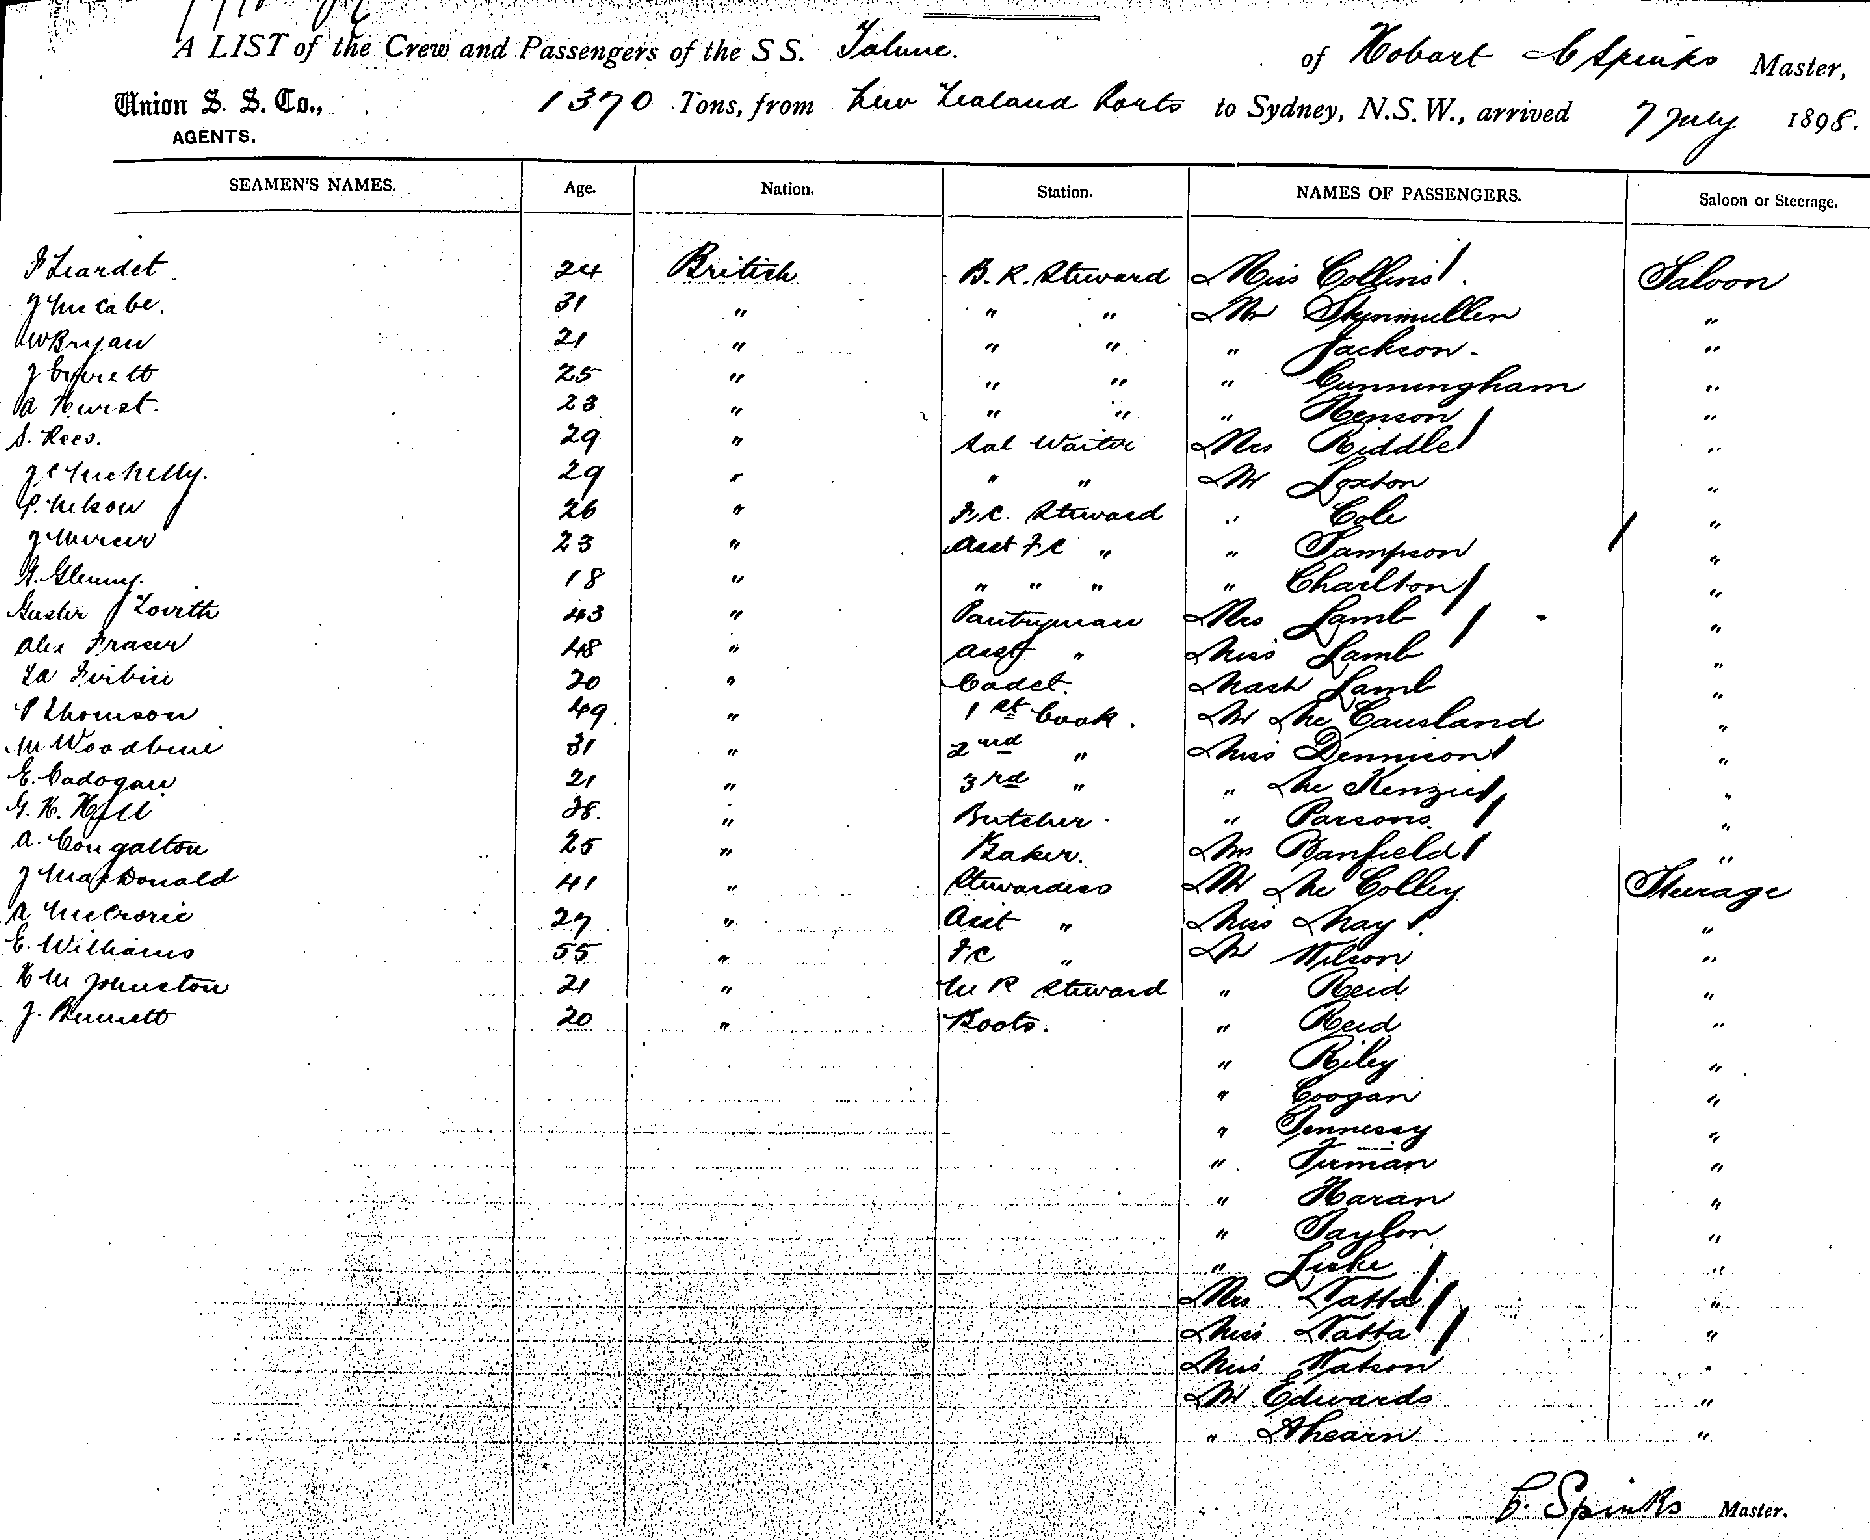 A LIST of the Crew and Passengers of the S S. Talune. of Hobart C Spinks Master,
Union S. S. Co., 1370 Tons, from New Zealand Ports to Sydney, N.S.W., arrived 7 July 1898.
AGENTS.
SEAMEN'S NAMES. Age. Nation. Station. NAMES OF PASSENGERS. Saloon or Steerage.
Liardet 24 British B. R. Steward Miss Collins Saloon
J McCabe. 31 " " " Mr Skinmuller "
W Bryan 21 " " " " Jackson. "
J 25 " " " " Cunningham "
A Hurst. 23 " " " " Henson "
S. Rees. 29 " Sal Waiter Mrs Riddle "
29 " " " Mr Loxton "
P. Nelson 26 " F.C. Steward " Cole "
J Mercer 23 " Asst F C " " Sampson "
A. Glenny. 18 " " " " " Charlton "
43 " Pantryman Mrs Lamb "
Alex Fraser 48 " Asst " Miss Lamb "
20 " Cadet. Mast Lamb "
P Thomson 49 " 1st Cook. Mr Mc Causland "
M Woodbine 31 " 2nd " Miss Dennison "
E. Cadogan 21 " 3rd " " Mc Kenzie "
G. H. Hill 38. " Butcher. " Parsons "
A. Congalton 25 " Baker. Mrs Banfield "
J MacDonald 41 " Stewardess Mr Mc Colley Steerage
A McCrorie 27 " Asst " Miss May "
E. Williams 55 " F C " Mr Wilson "
H M Johnston 21 " M R Steward " Reid "
J. Bennett 20 " Boots. " Reid "
" Riley "
" Coogan "
" Tennessy "
" Firman "
" Haran "
" Taylor "
" Liske "
Mrs Natta "
Miss Natta "
Miss Watson "
Mr Edwards "
" Ahearn "
C. Spinks Master.